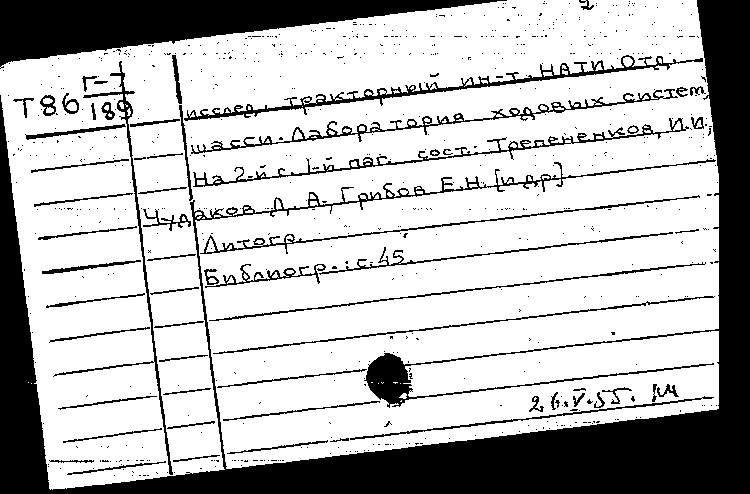 2
Т86 Г-7
189
исслед. тракторный ин-т. НАТИ. Отд.
шасси. Лаборатория ходовых систем
На 2-й с. 1-й паг. сост.: Трепененков, И.И.,
Чудаков Д. А., Грибов Е.Н. [и др.]
Литогр.
Библиогр.: с. 45.
26.V.55.